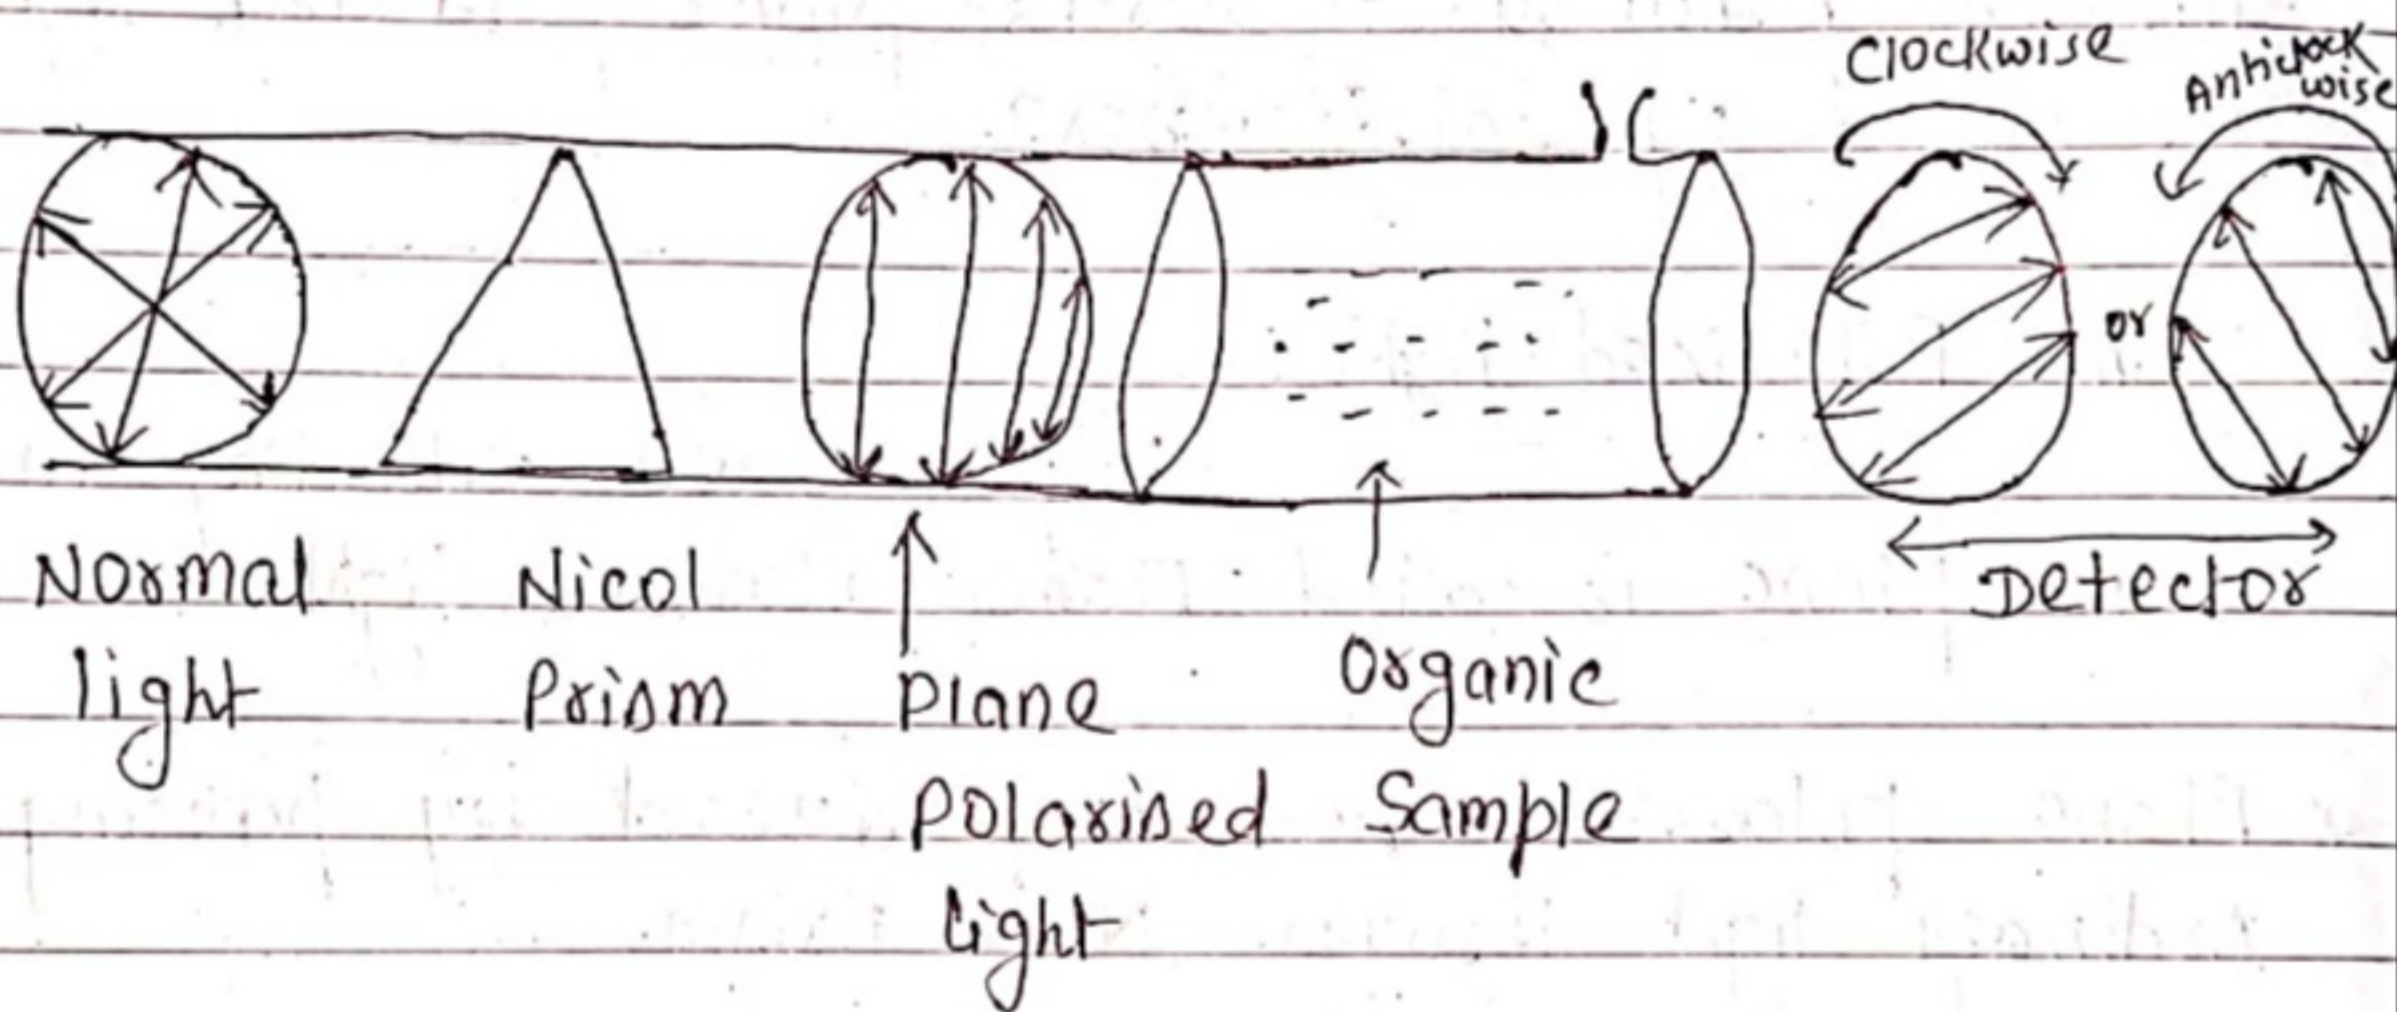 Clockwise
Anticlock
wise
or
Detector
Normal
light
Nicol
Prism
Plane
Polarised
light
Organic
Sample